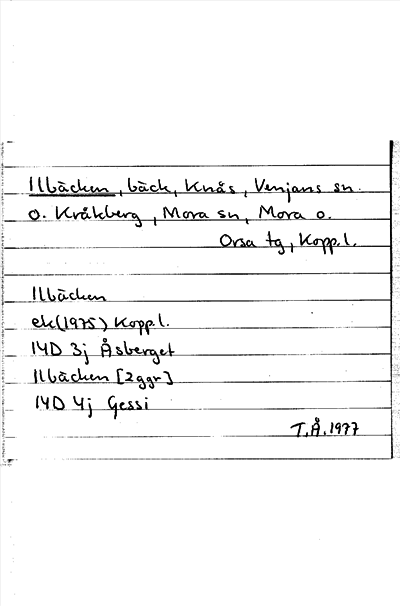 Ilbäcken, bäck, Knås, Venjans sn.
o. Kråkberg, Mora sn, Mora o.
Orsa tg, Kopp.l.
Ilbäcken
ek(1975) Kopp.l.
14D 3j Åsberget
Ilbäcken [2ggr]
14D 4j Gessi
T.Å.1977